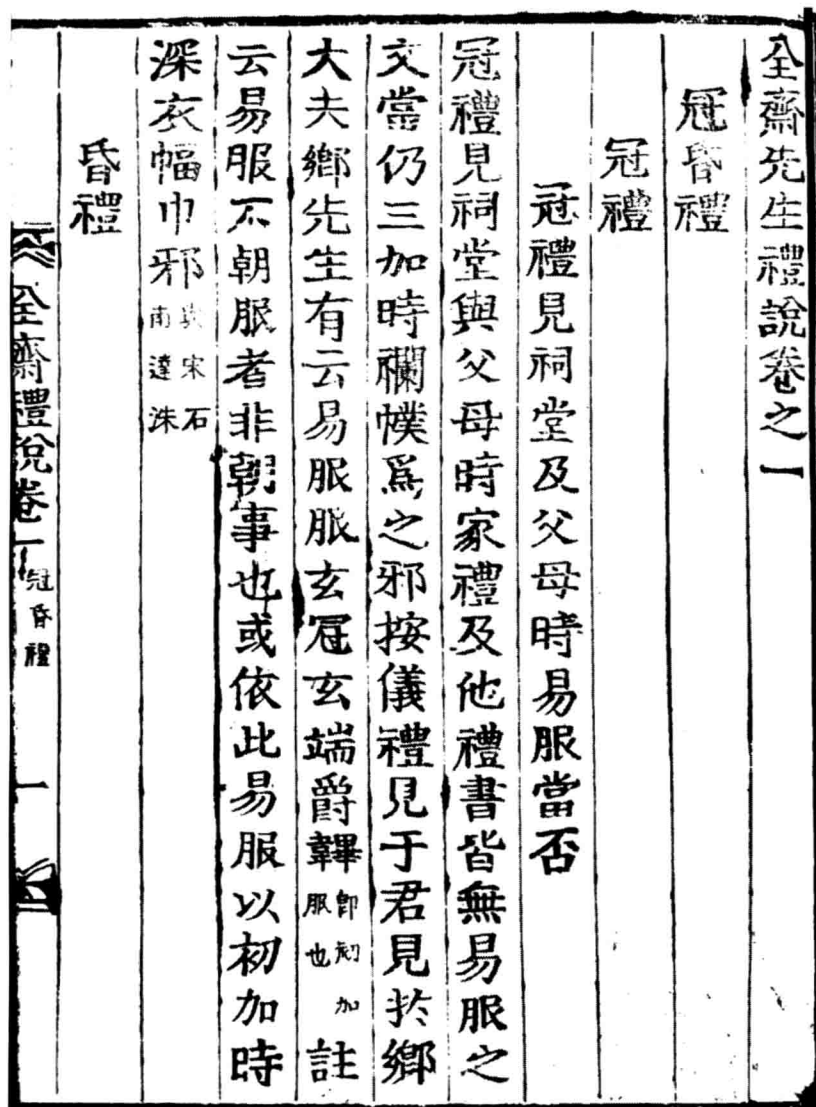 全齋先生禮說卷之一
冠昏禮
冠禮
冠禮見祠堂及父母時易服當否
冠禮見祠堂與父母時家禮及他禮書皆無易服之
文當仍三加時襴幞爲之邪按儀禮見于君見於鄉
大夫鄉先生有云易服服玄冠玄端爵韠卽初加服也註
云易服不朝服者非朝事也或依此易服以初加時
深衣幅巾邪與宋石南達洙
昏禮
全齋禮說卷一 冠昏禮 一